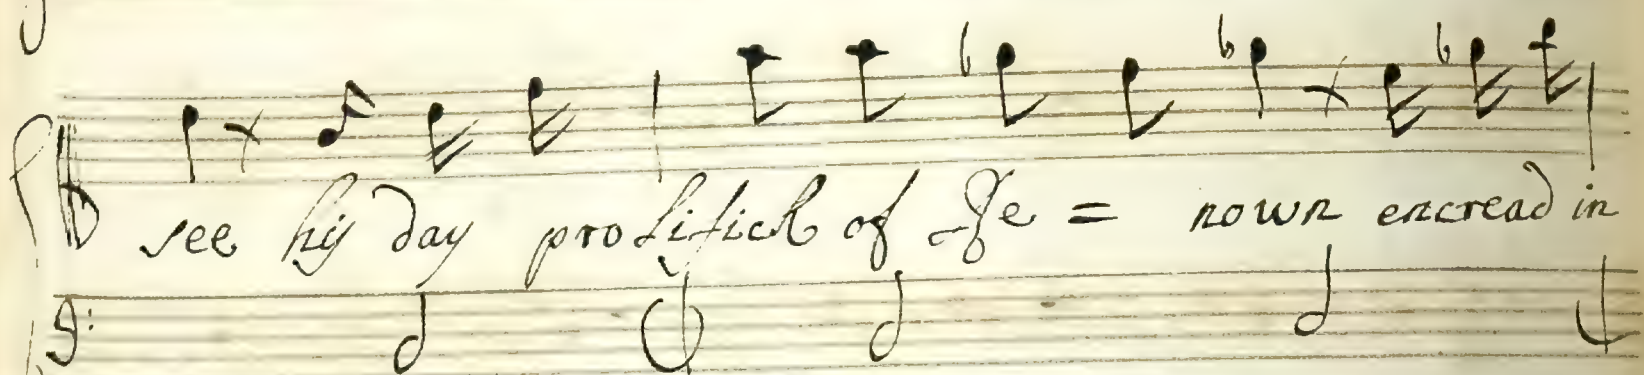 see his day prolifick of Re = nown encread in